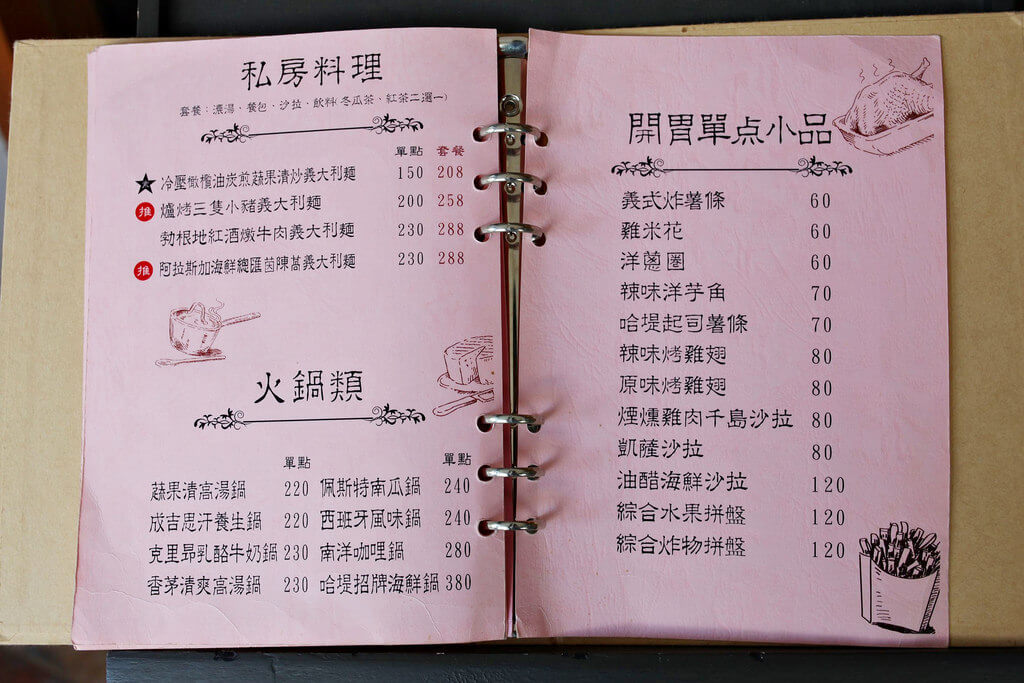 私房料理
套餐：濃湯、餐包、沙拉、飲料(冬瓜茶、紅茶二選一)
單點 套餐
冷壓橄欖油炭煎蔬果清炒義大利麵 150 208
推 爐烤三隻小豬義大利麵 200 258
勃根地紅酒燉牛肉義大利麵 230 288
推 阿拉斯加海鮮總匯茵陳蒿義大利麵 230 288
火鍋類
單點 單點
蔬果清高湯鍋 220 佩斯特南瓜鍋 240
成吉思汗養生鍋 220 西班牙風味鍋 240
克里昂乳酪牛奶鍋 230 南洋咖哩鍋 280
香茅清爽高湯鍋 230 哈堤招牌海鮮鍋 380
開胃單点小品
義式炸薯條 60
雞米花 60
洋蔥圈 60
辣味洋芋角 70
哈堤起司薯條 70
辣味烤雞翅 80
原味烤雞翅 80
煙燻雞肉千島沙拉 80
凱薩沙拉 80
油醋海鮮沙拉 120
綜合水果拼盤 120
綜合炸物拼盤 120